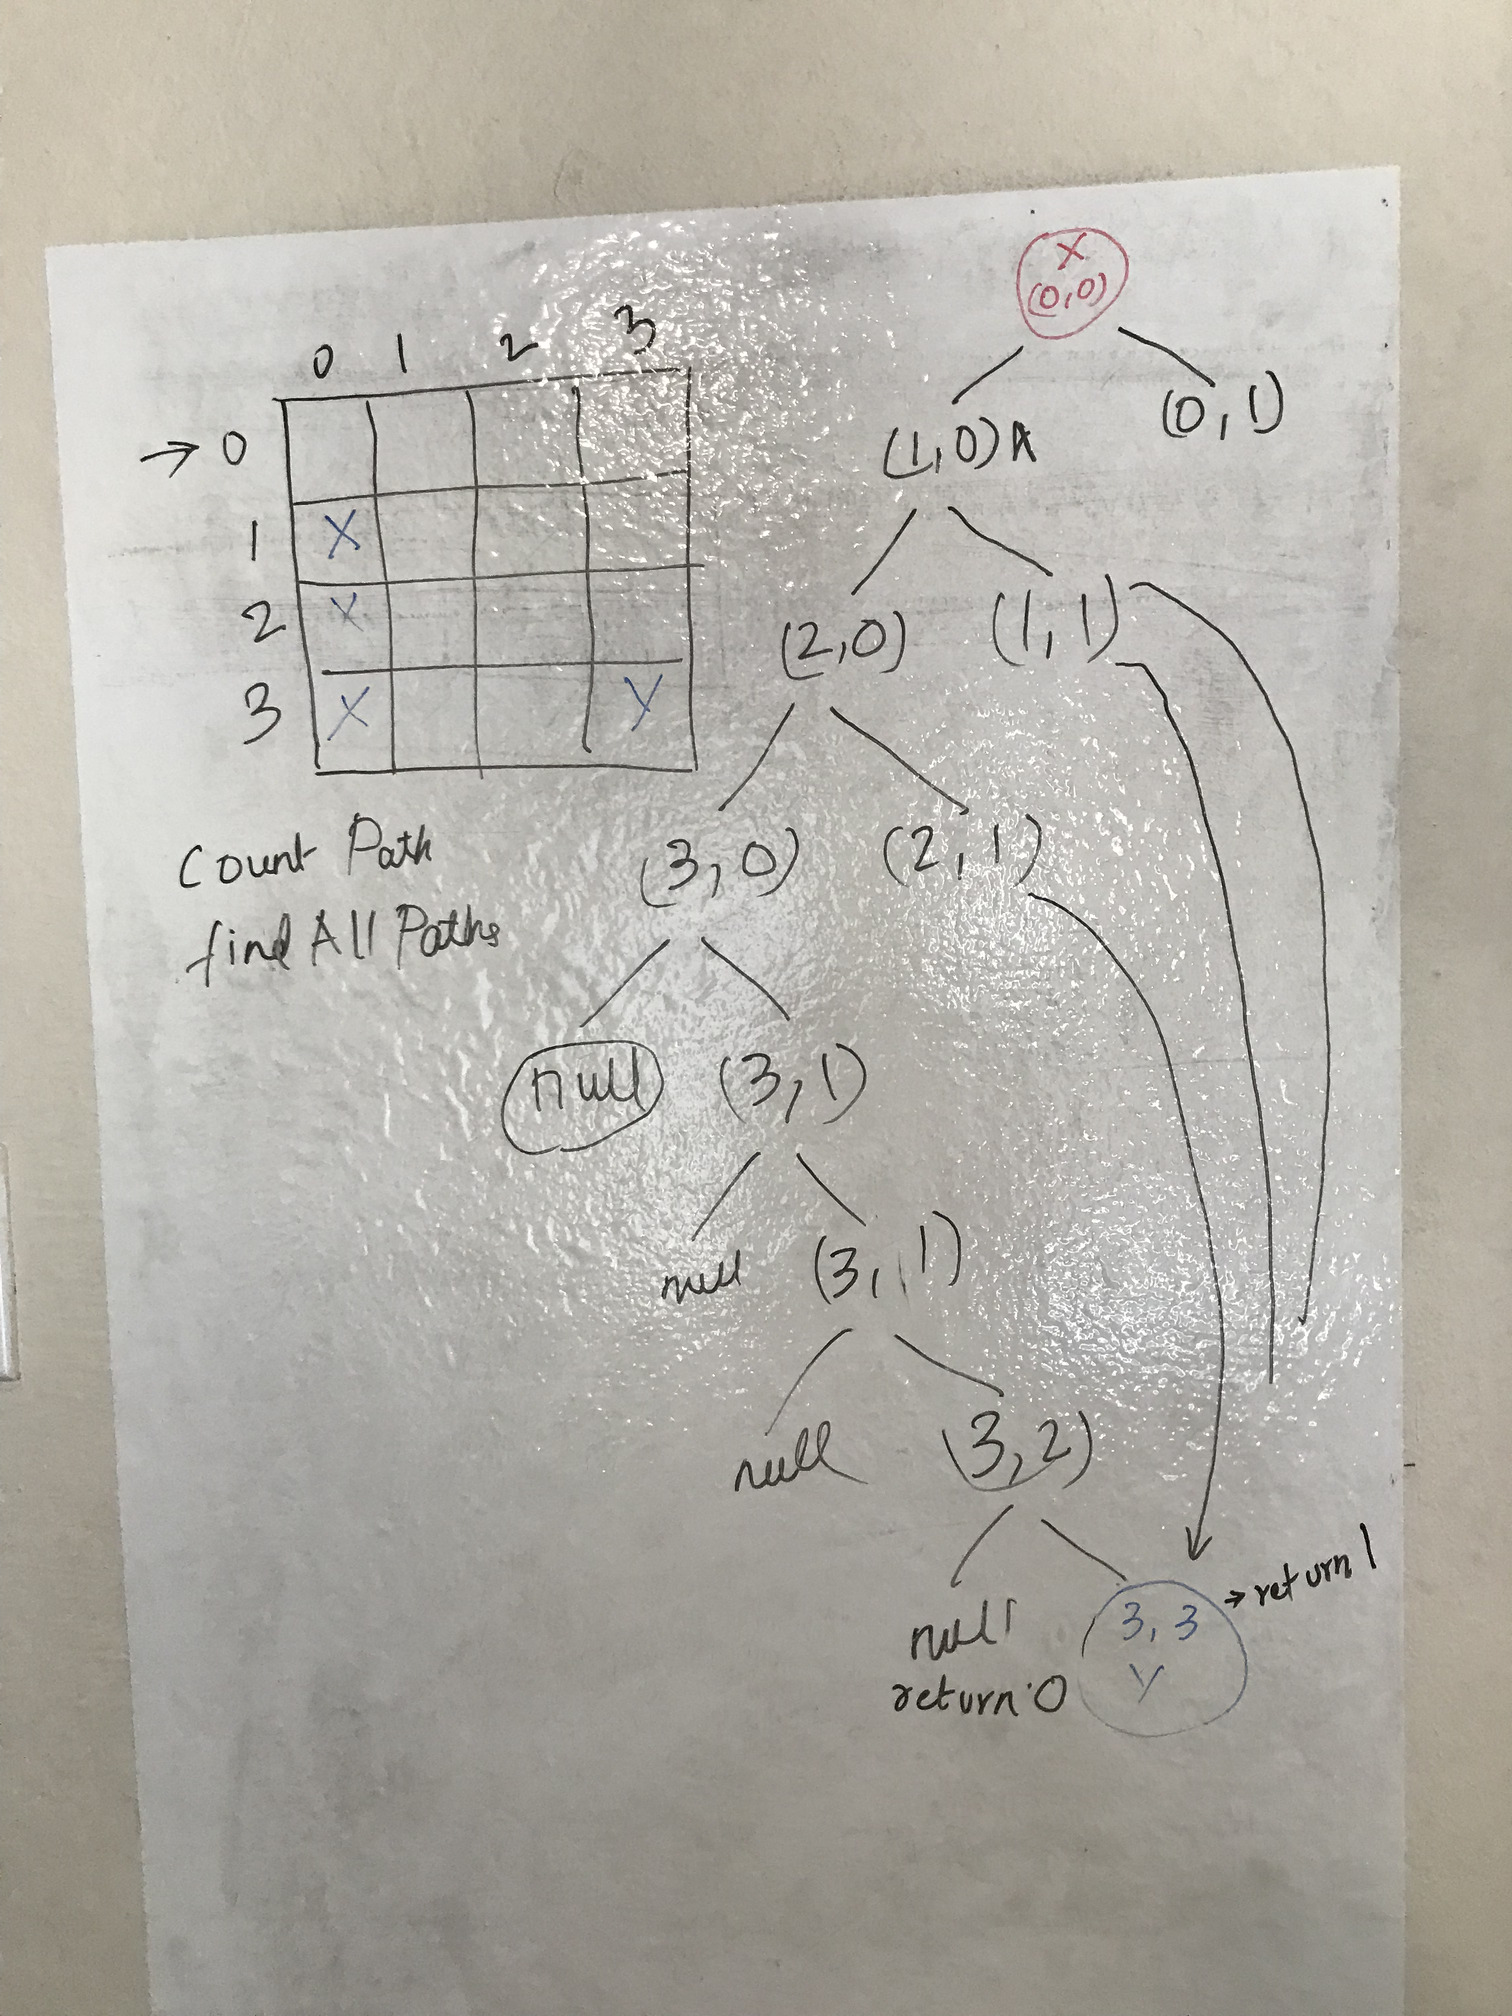 0 1 2 3
→ 0
1 X
2 X
3 X Y
Count Path
find All Paths
X
(0,0)
(1,0)A (0,1)
(2,0) (1,1)
(3,0) (2,1)
null (3,1)
null (3,1)
null (3,2)
null 3,3 → return 1
return 0 Y